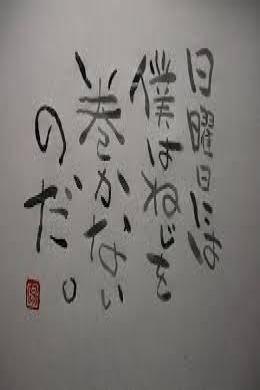 日曜日には
僕はねじを
巻かない
のだ。